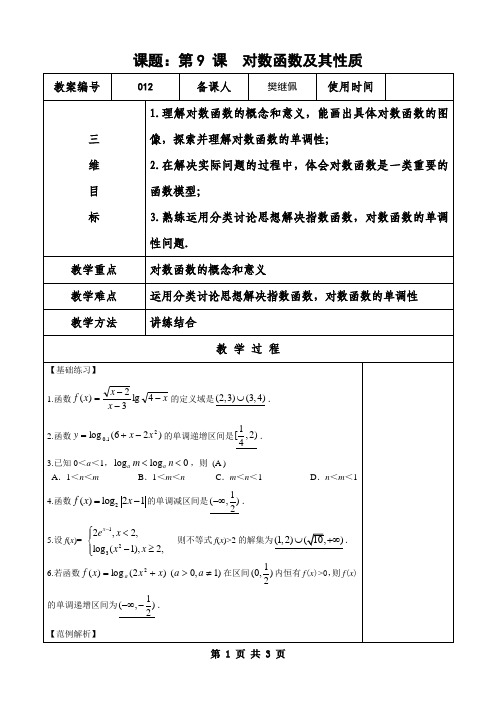 课题：第9 课 对数函数及其性质
教案编号 012 备课人 樊继佩 使用时间
三维目标
1.理解对数函数的概念和意义，能画出具体对数函数的图
像，探索并理解对数函数的单调性;
2.在解决实际问题的过程中，体会对数函数是一类重要的
函数模型;
3.熟练运用分类讨论思想解决指数函数，对数函数的单调
性问题.
教学重点 对数函数的概念和意义
教学难点 运用分类讨论思想解决指数函数，对数函数的单调性
教学方法 讲练结合
教 学 过 程
【基础练习】
1.函数 f(x)=√(x−2)/(x−3) lg√(4−x) 的定义域是(2,3)∪(3,4)．
2.函数 y=log₀.₁(6+x−2x²)的单调递增区间是[1/4,2)．
3.已知 0<a<1，logₐ m<logₐ n<0，则 (A )
A．1<n<m B．1<m<n C．m<n<1 D．n<m<1
4.函数 f(x)=log₂|2x−1|的单调减区间是(−∞,1/2)．
5.设 f(x)= {2e^(x−1), x<2, log₃(x²−1), x≥2, 则不等式 f(x)>2 的解集为(1,2)∪(√10,+∞)．
6.若函数 f(x)=logₐ(2x²+x) (a>0,a≠1)在区间(0,1/2)内恒有 f（x）>0,则 f（x）
的单调递增区间为(−∞,−1/2)．
【范例解析】
第 1 页 共 3 页